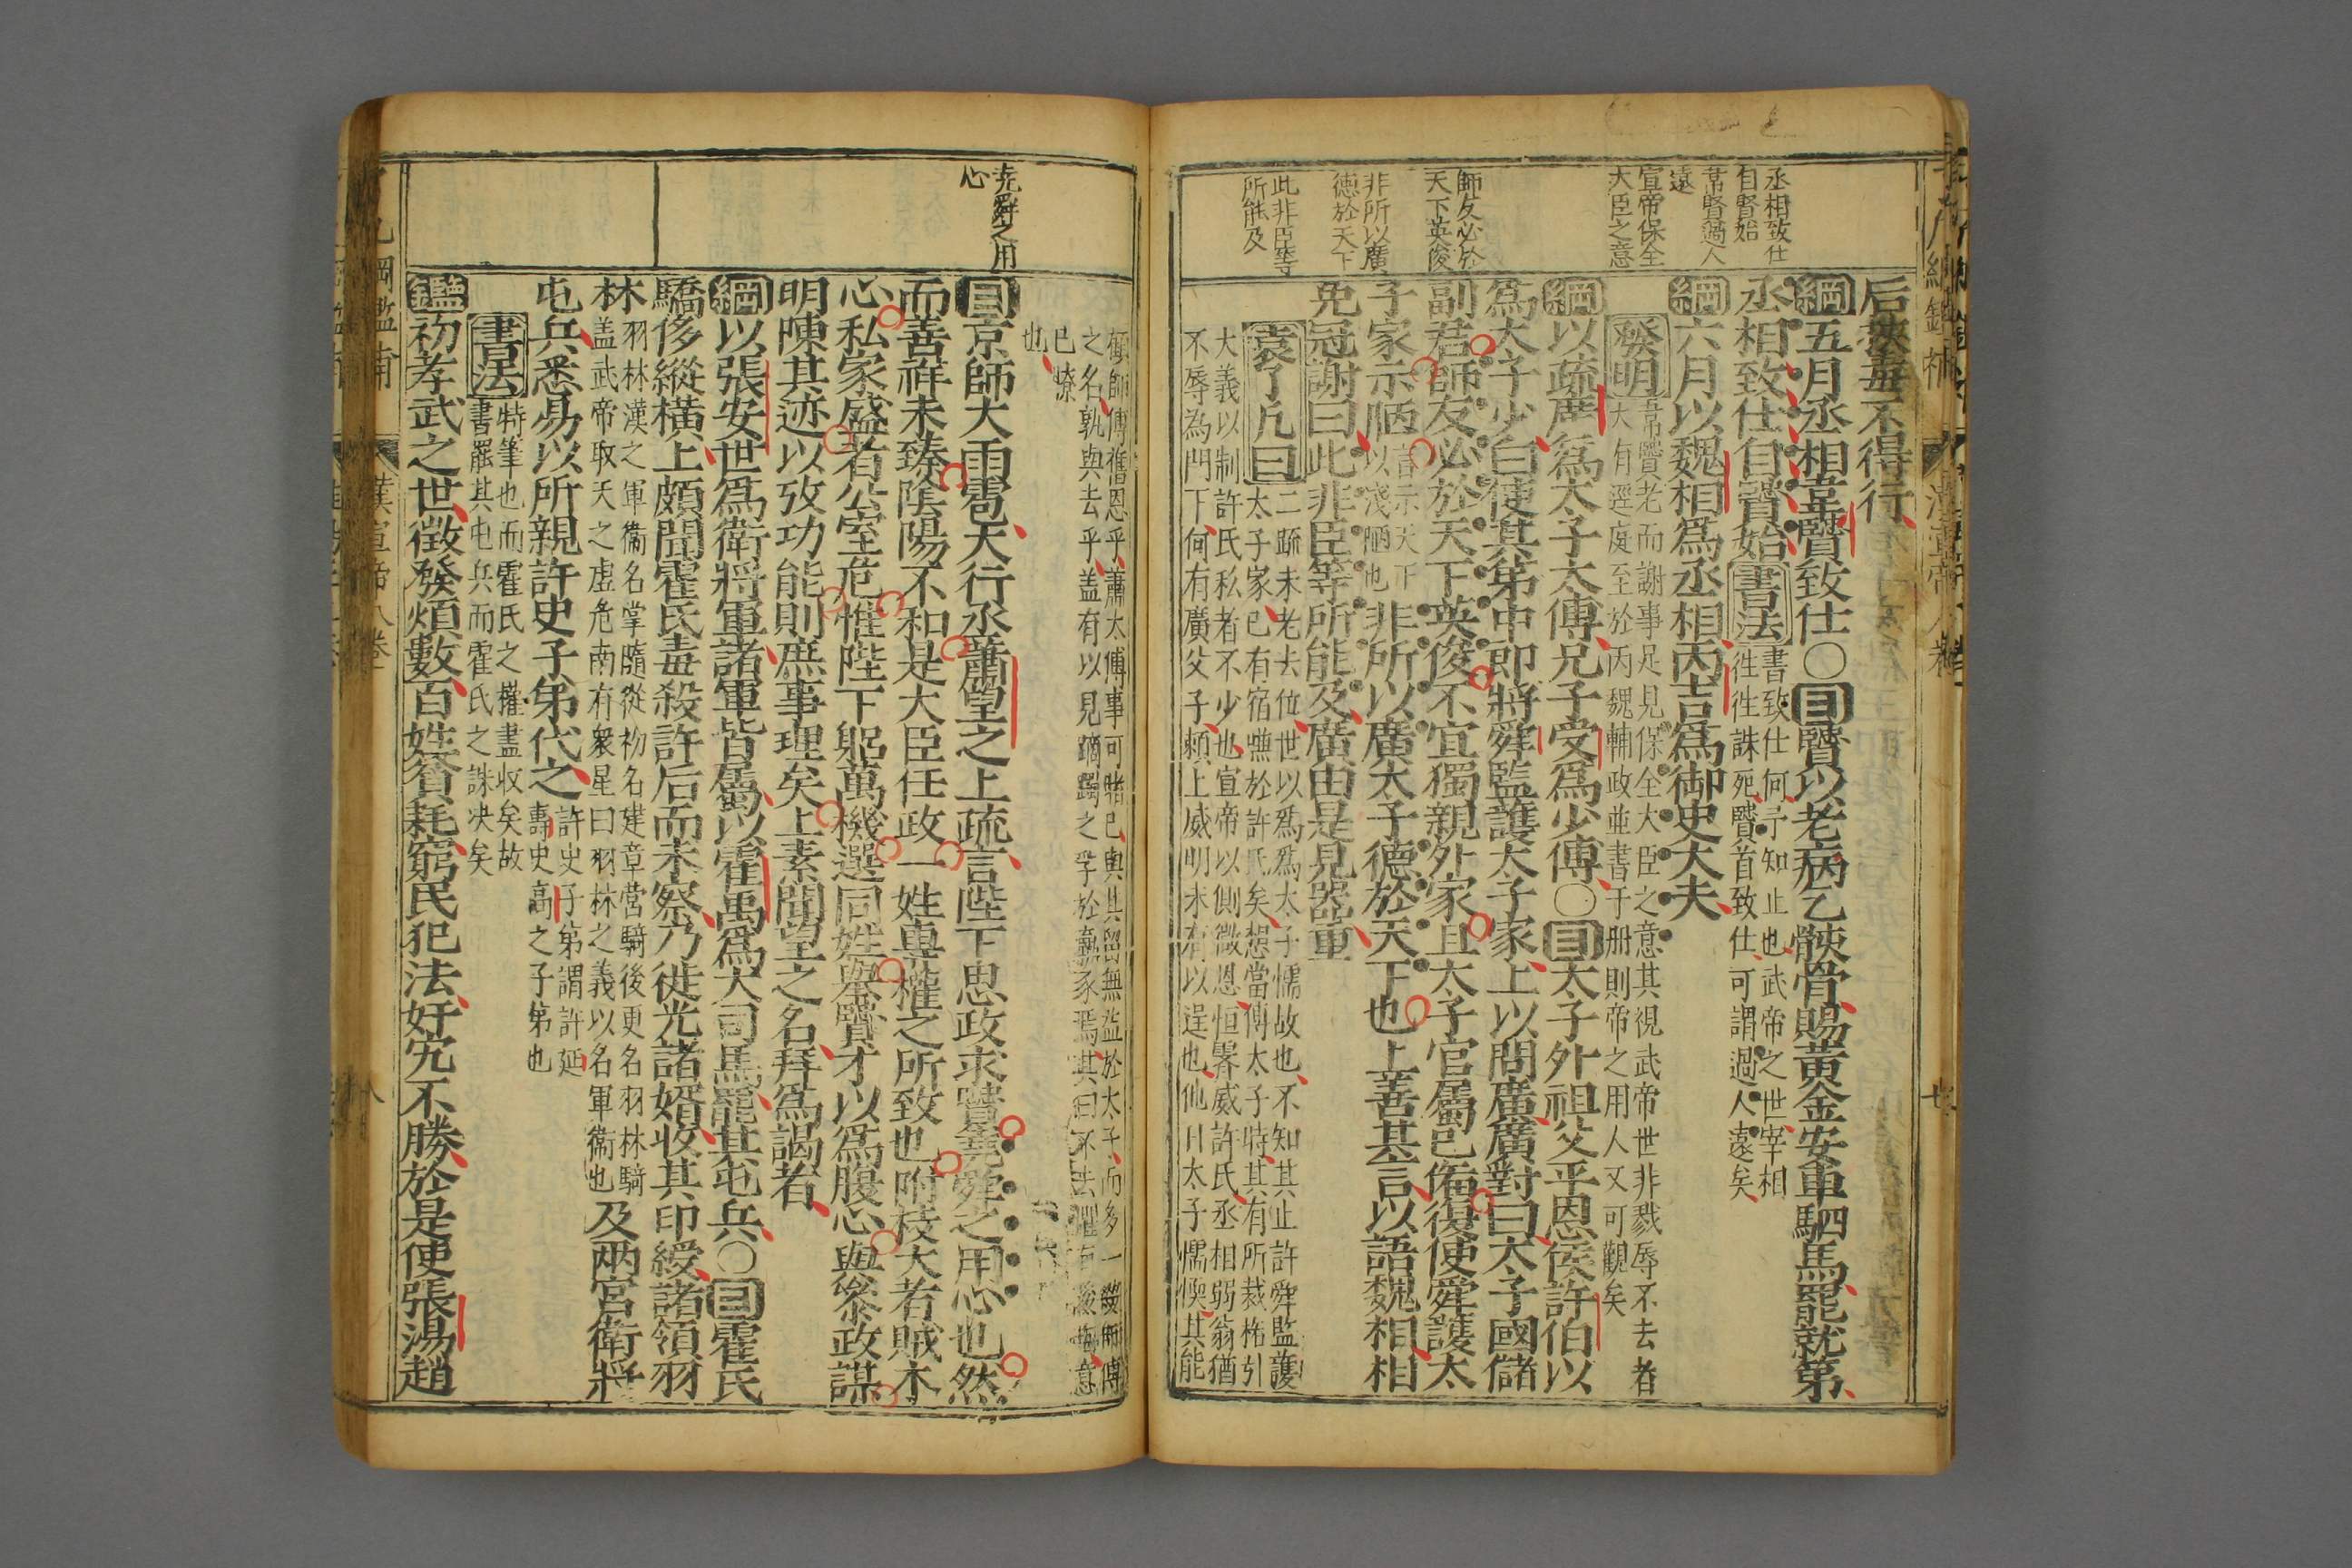 丞相致仕
自賢始
韋賢過人
遠
宣帝保全
大臣之意
師友必於
天下英俊
非所以廣
德於天下
此非臣等
所能及
后挾毒不得行
綱五月丞相韋賢致仕〇目賢以老病乞骸骨賜黃金安車駟馬罷就第
丞相致仕自賢始書法書致仕何予知止也武帝之世宰相
徃徃誅死賢首致仕可謂過人遠矣
綱六月以魏相爲丞相丙吉爲御史大夫
發明韋賢老而謝事足見保全大臣之意其視武帝世非戮辱不去者
大有逕庭至於丙魏輔政並書于册則帝之用人又可觀矣
綱以疏廣爲太子太傅兄子受爲少傅〇目太子外祖父平恩侯許伯以
爲太子少白使其弟中郎將舜監護太子家上以問廣廣對曰太子國儲
副君師友必於天下英俊不宜獨親外家且太子官屬已備復使舜護太
子家示陋言示天下以淺陋也非所以廣太子德於天下也上善其言以語魏相相
免冠謝曰此非臣等所能及廣由是見器重
袁了凡曰二疏未老去位世以爲爲太子懦故也不知其止許舜監護
太子家已有宿嫌於許氏矣想當傅太子時其有所裁格引
大義以制許氏私者不少也宣帝以側微恩恒畧威許氏丞相弱翁猶
不辱為門下何有廣父子賴上威明未有以逞也他日太子懦愞其能
堯舜之用
心
顧師傅舊恩乎蕭太傅事可睹已與其留無益於太子而多一殺師傅
之名孰與去乎盖有以見蹢躅之孚於羸豕焉其曰不去懼有後悔意
已憭
也
目京師大雨雹大行丞蕭望之上疏言陛下思政求賢堯舜之用心也然
而善祥未臻陰陽不和是大臣任政一姓專權之所致也附枝大者賊本
心私家盛者公室危惟陛下躬萬機選同姓舉賢才以爲腹心與參政謀
明陳其迹以攷功能則庶事理矣上素聞望之名拜爲謁者
綱以張安世爲衛將軍諸軍皆屬以霍禹爲大司馬罷其屯兵〇目霍氏
驕侈縱橫上頗聞霍氏毒殺許后而未察乃徙光諸婿收其印綬諸領羽
林羽林漢之軍衞名掌隨從初名建章營騎後更名羽林騎
盖武帝取天之虛危南有衆星曰羽林之義以名軍衞也及兩宮衛將
屯兵悉易以所親許史子弟代之許史子弟謂許延
壽史高之子弟也
書法特筆也而霍氏之權盡收矣故
書罷其屯兵而霍氏之誅决矣
鑑初孝武之世徵發煩數百姓貧耗窮民犯法奸宄不勝於是使張湯趙